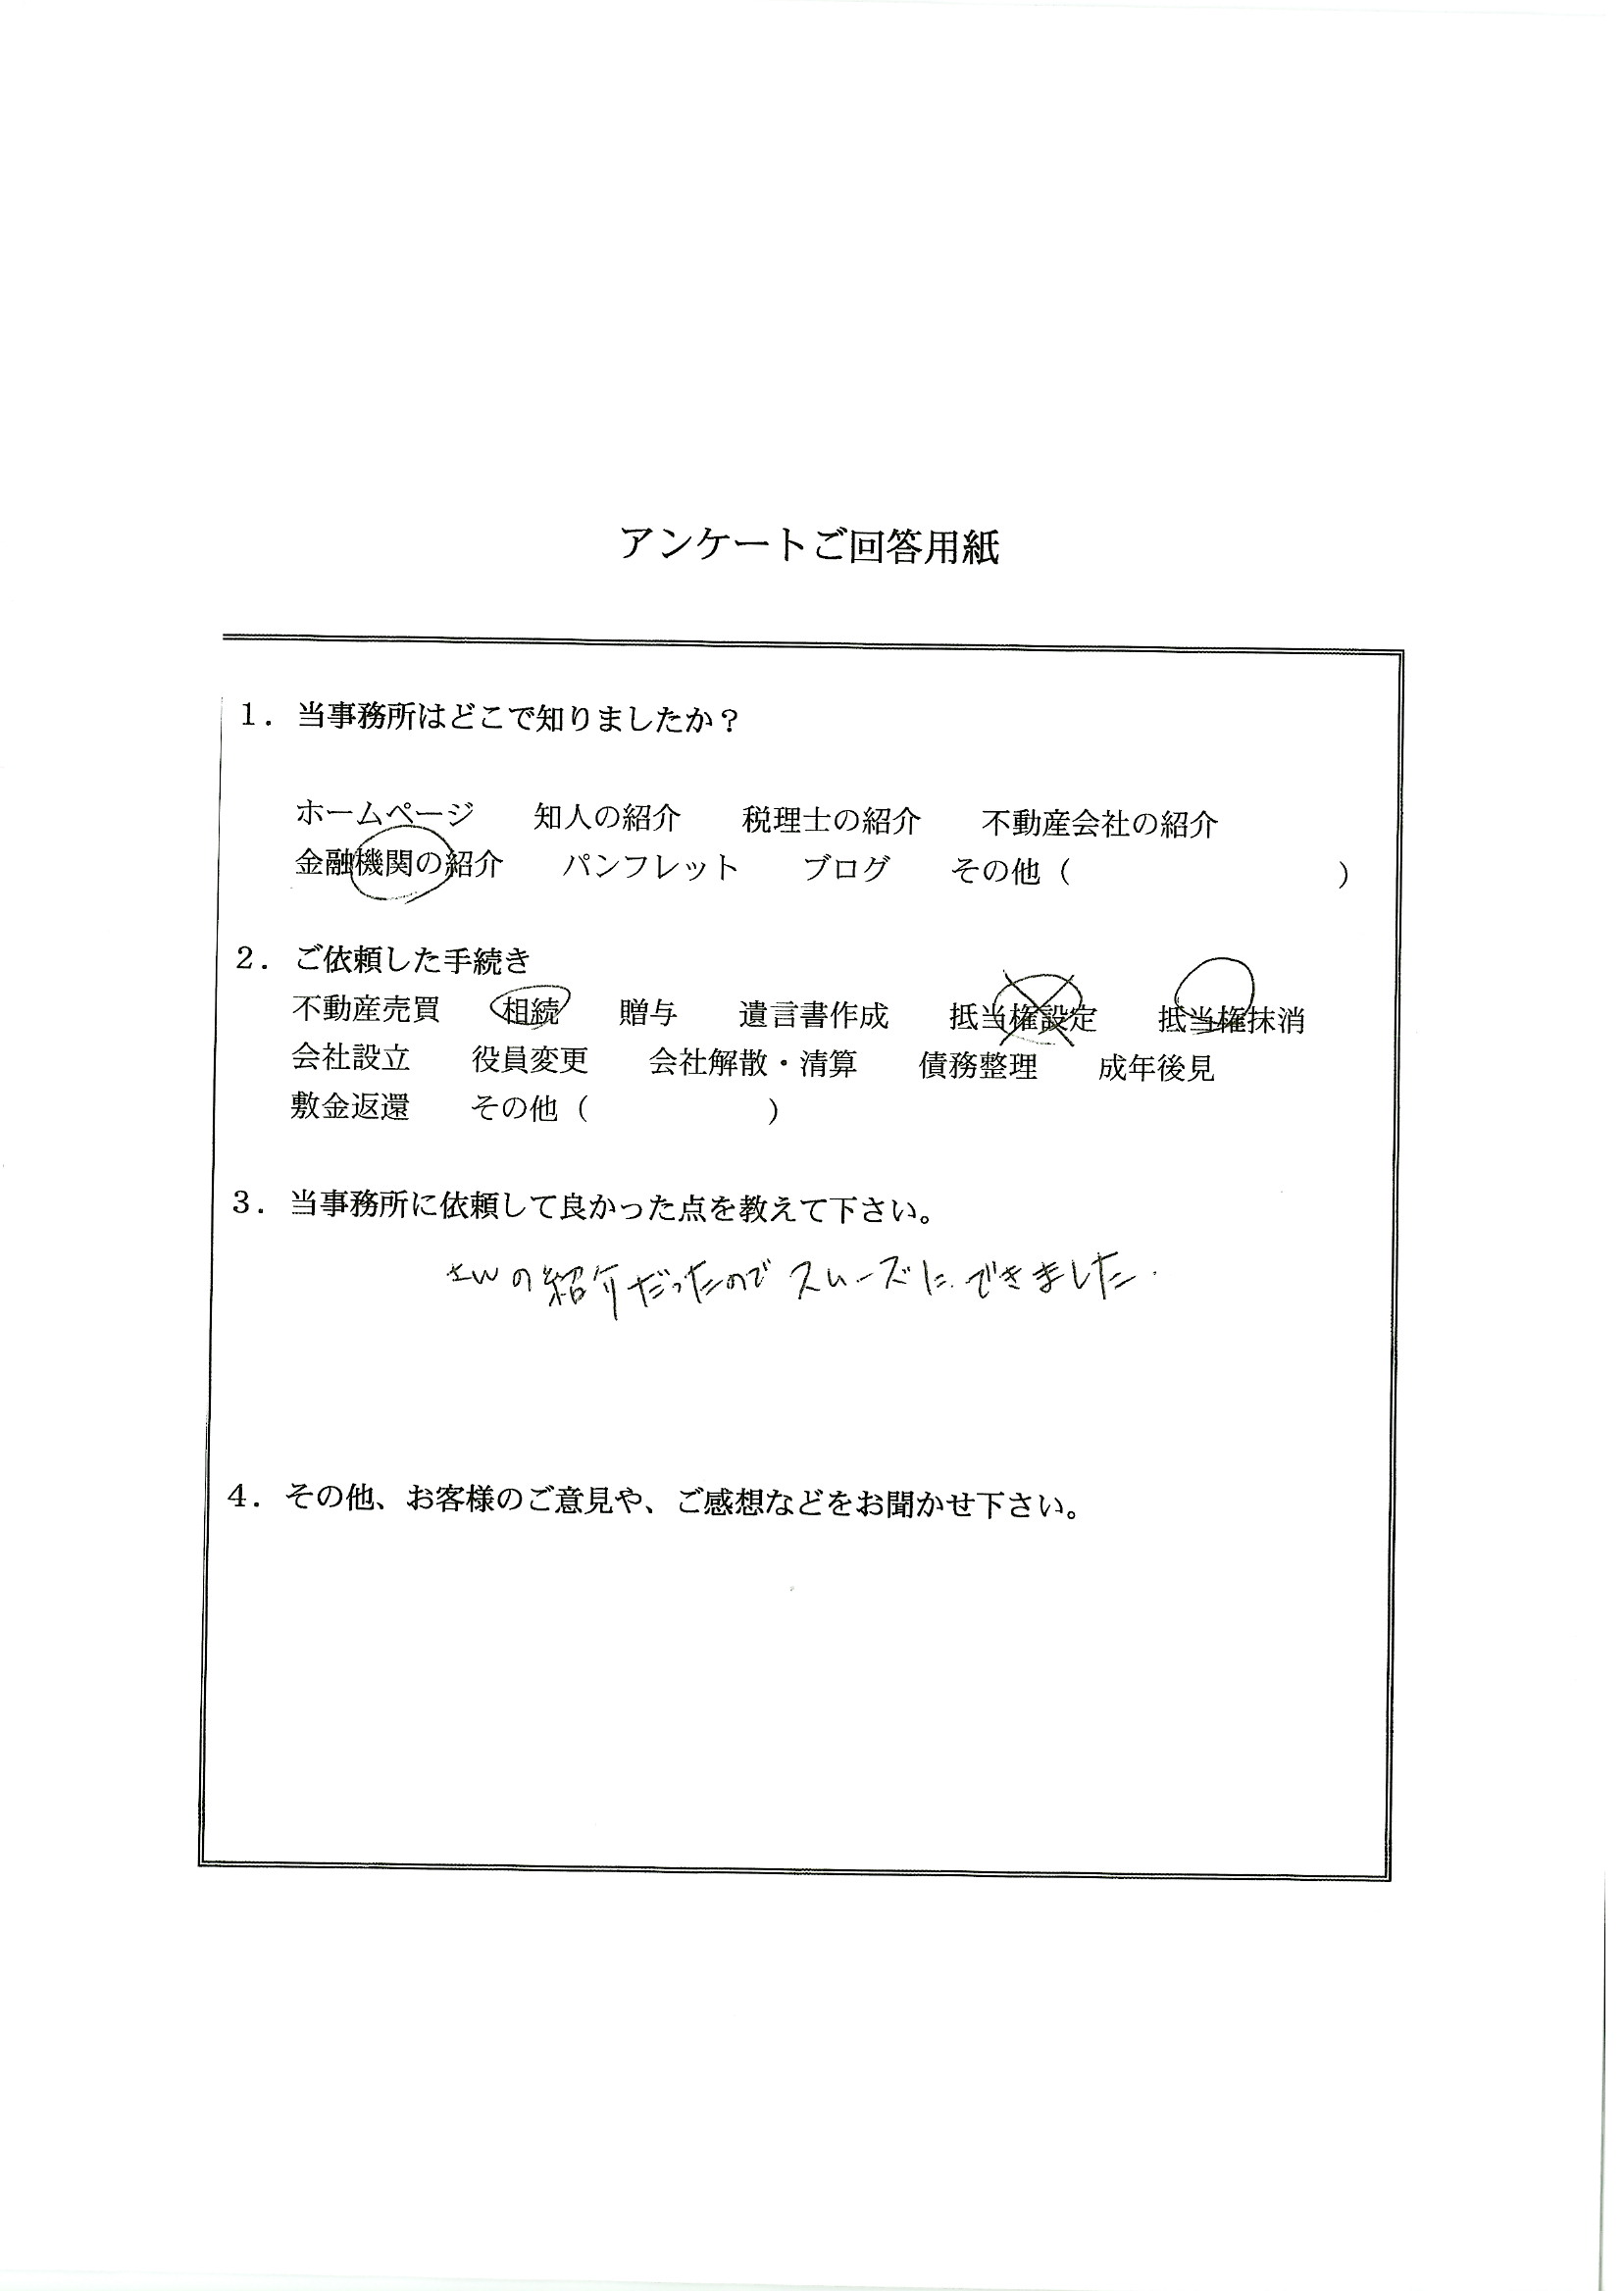 アンケートご回答用紙
１．当事務所はどこで知りましたか？
ホームページ　知人の紹介　税理士の紹介　不動産会社の紹介
金融機関の紹介　パンフレット　ブログ　その他（　　　　　　　　　）
２．ご依頼した手続き
不動産売買　相続　贈与　遺言書作成　抵当権設定　抵当権抹消
会社設立　役員変更　会社解散・清算　債務整理　成年後見
敷金返還　その他（　　　　　　）
３．当事務所に依頼して良かった点を教えて下さい。
の紹介だったのでスムーズにできました.
４．その他、お客様のご意見や、ご感想などをお聞かせ下さい。